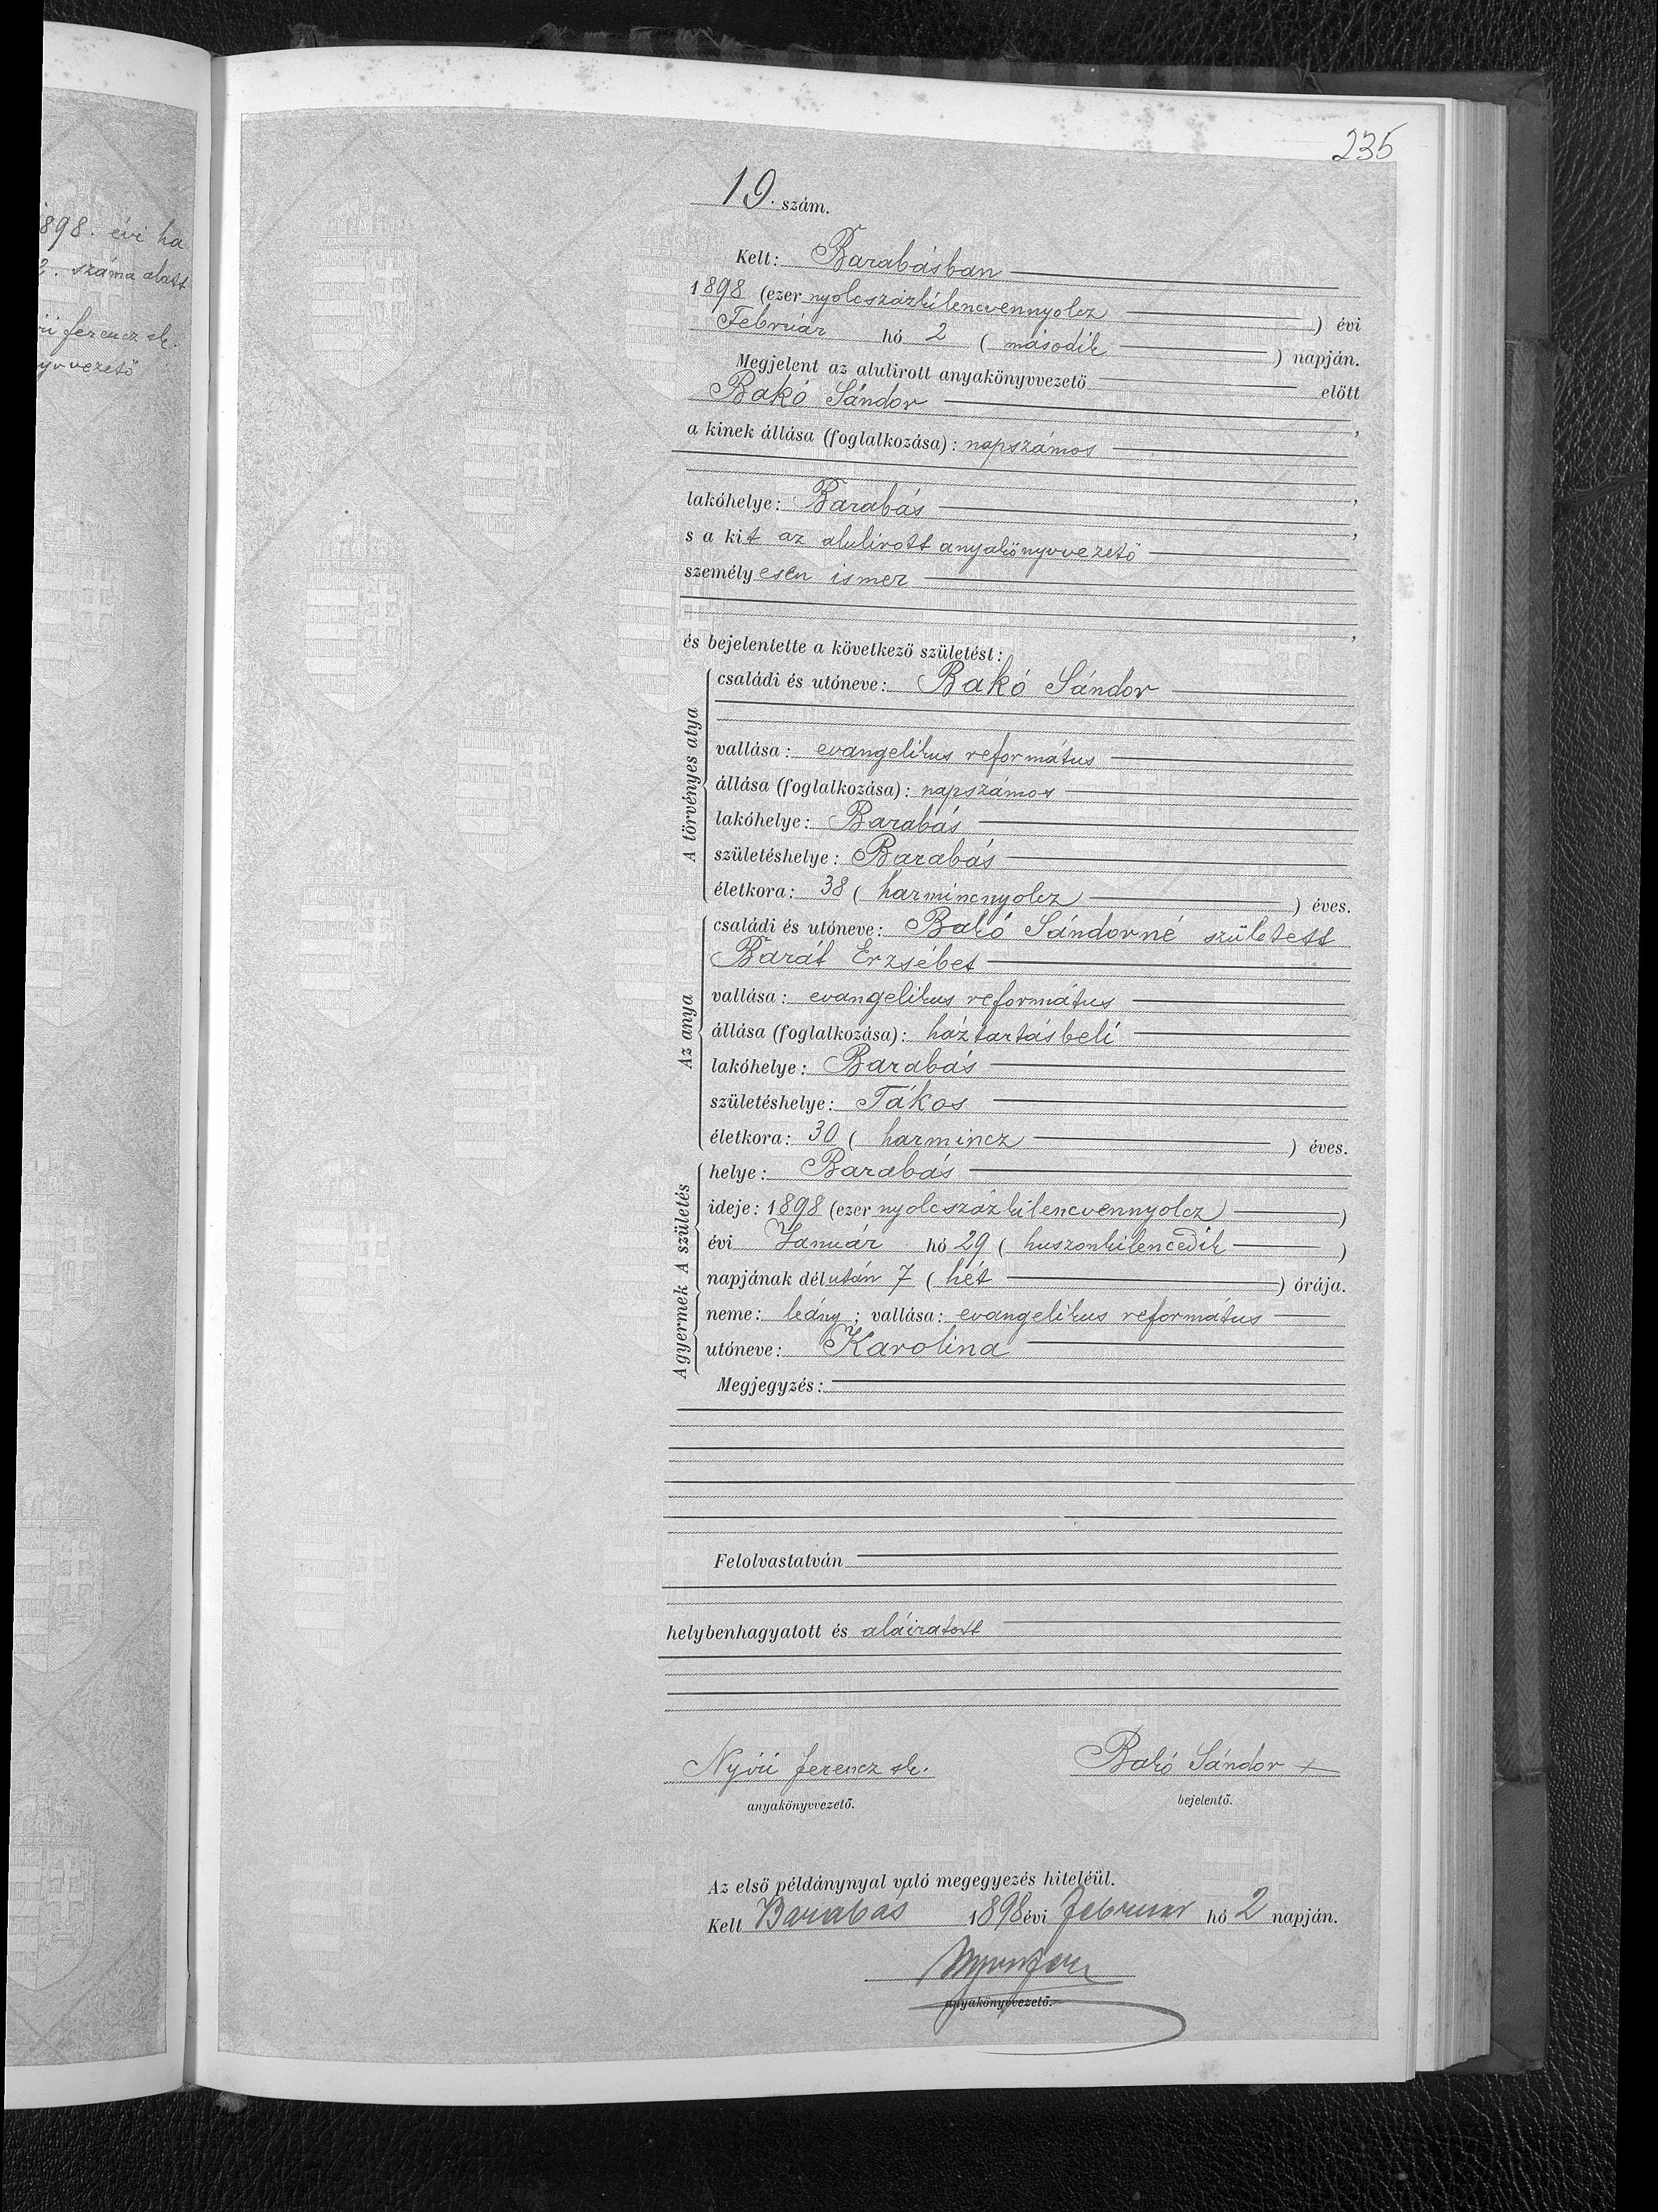 898. évi ha
2. száma alatt
ri ferencz sk.
yvvezető
235
19. szám.
Kelt: Barabásban
1898 (ezer nyolcszázkilencvennyolcz ) évi
Február hó 2 ( második ) napján.
Megjelent az alulirott anyakönyvvezető előtt
Bakó Sándor ,
a kinek állása (foglalkozása): napszámos
,
lakóhelye: Barabás ,
s a kit az alulirott anyakönyvvezető
személyesen ismer
,
és bejelentette a következő születést:
A törvényes atya
családi és utóneve: Bakó Sándor
vallása: evangelikus református
állása (foglalkozása): napszámos
lakóhelye: Barabás
születéshelye: Barabás
életkora: 38 ( harmincnyolcz ) éves.
Az anya
családi és utóneve: Bakó Sándorné született
Barát Erzsébet
vallása: evangelikus református
állása (foglalkozása): háztartásbeli
lakóhelye: Barabás
születéshelye: Tákos
életkora: 30 ( harmincz ) éves.
A gyermek A születés
helye: Barabás
ideje: 1898 (ezer nyolcszázkilencvennyolcz )
évi Január hó 29 ( huszonkilencedik )
napjának délután 7 ( hét ) órája.
neme: leány ; vallása: evangelikus református
utóneve: Karolina
Megjegyzés:
Felolvastatván
helybenhagyatott és aláiratott
Nyíri ferencz sk. Bakó Sándor +
anyakönyvvezető. bejelentő.
Az első példánynyal való megegyezés hiteléül.
Kelt Barabás 1898 évi február hó 2 napján.
anyakönyvvezető.